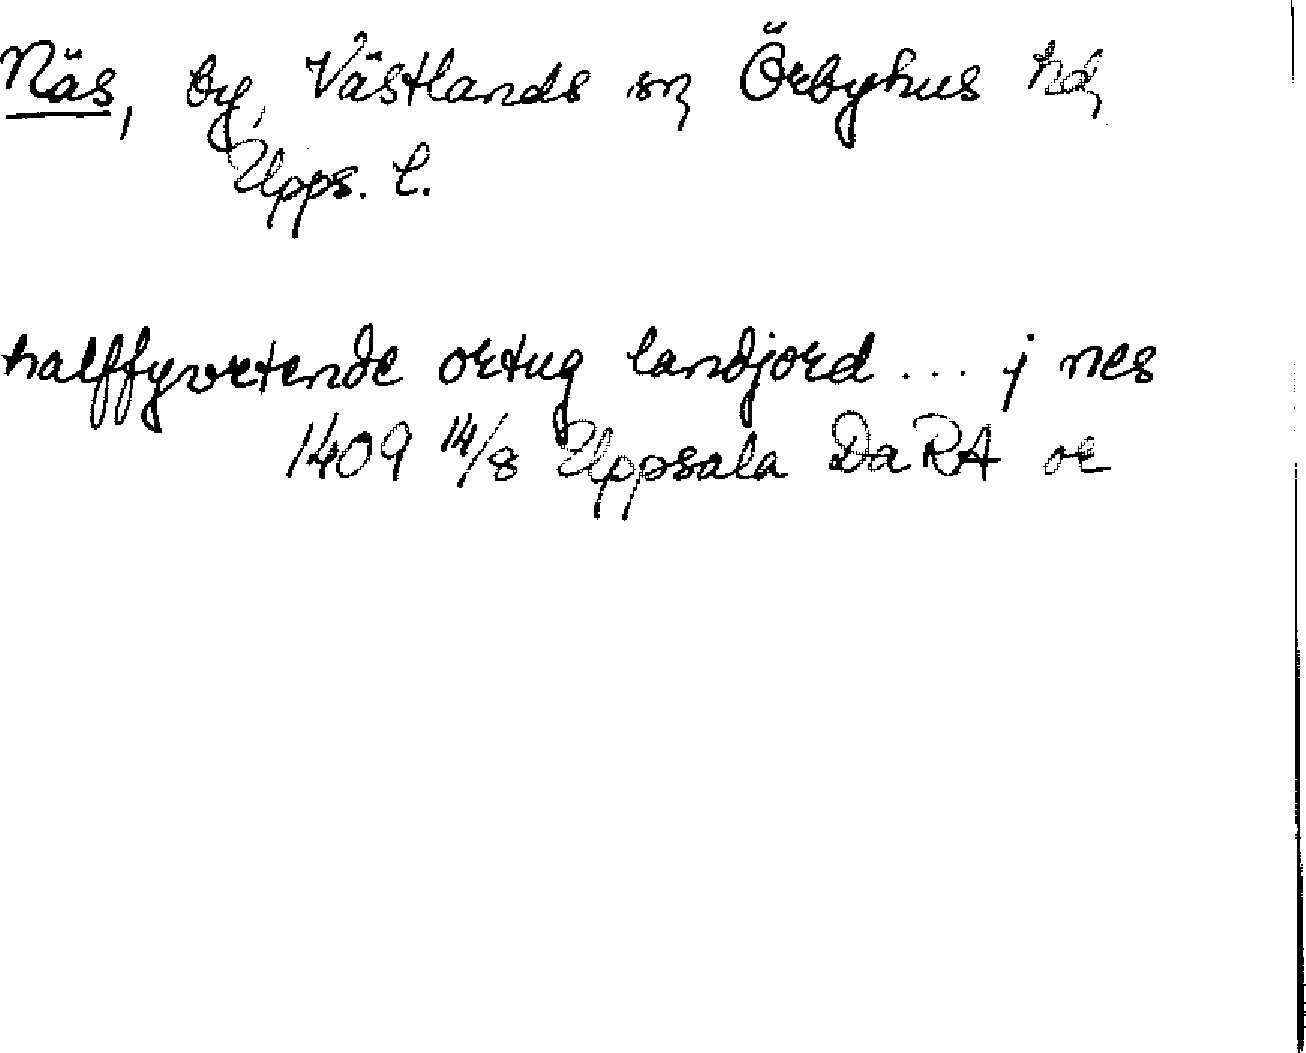 Näs, by, Västlands sn, Örbyhus hd,
Upps. l.
halffyvrtende ortug landjord ... j nes
1409 14/8 Uppsala Da RA or